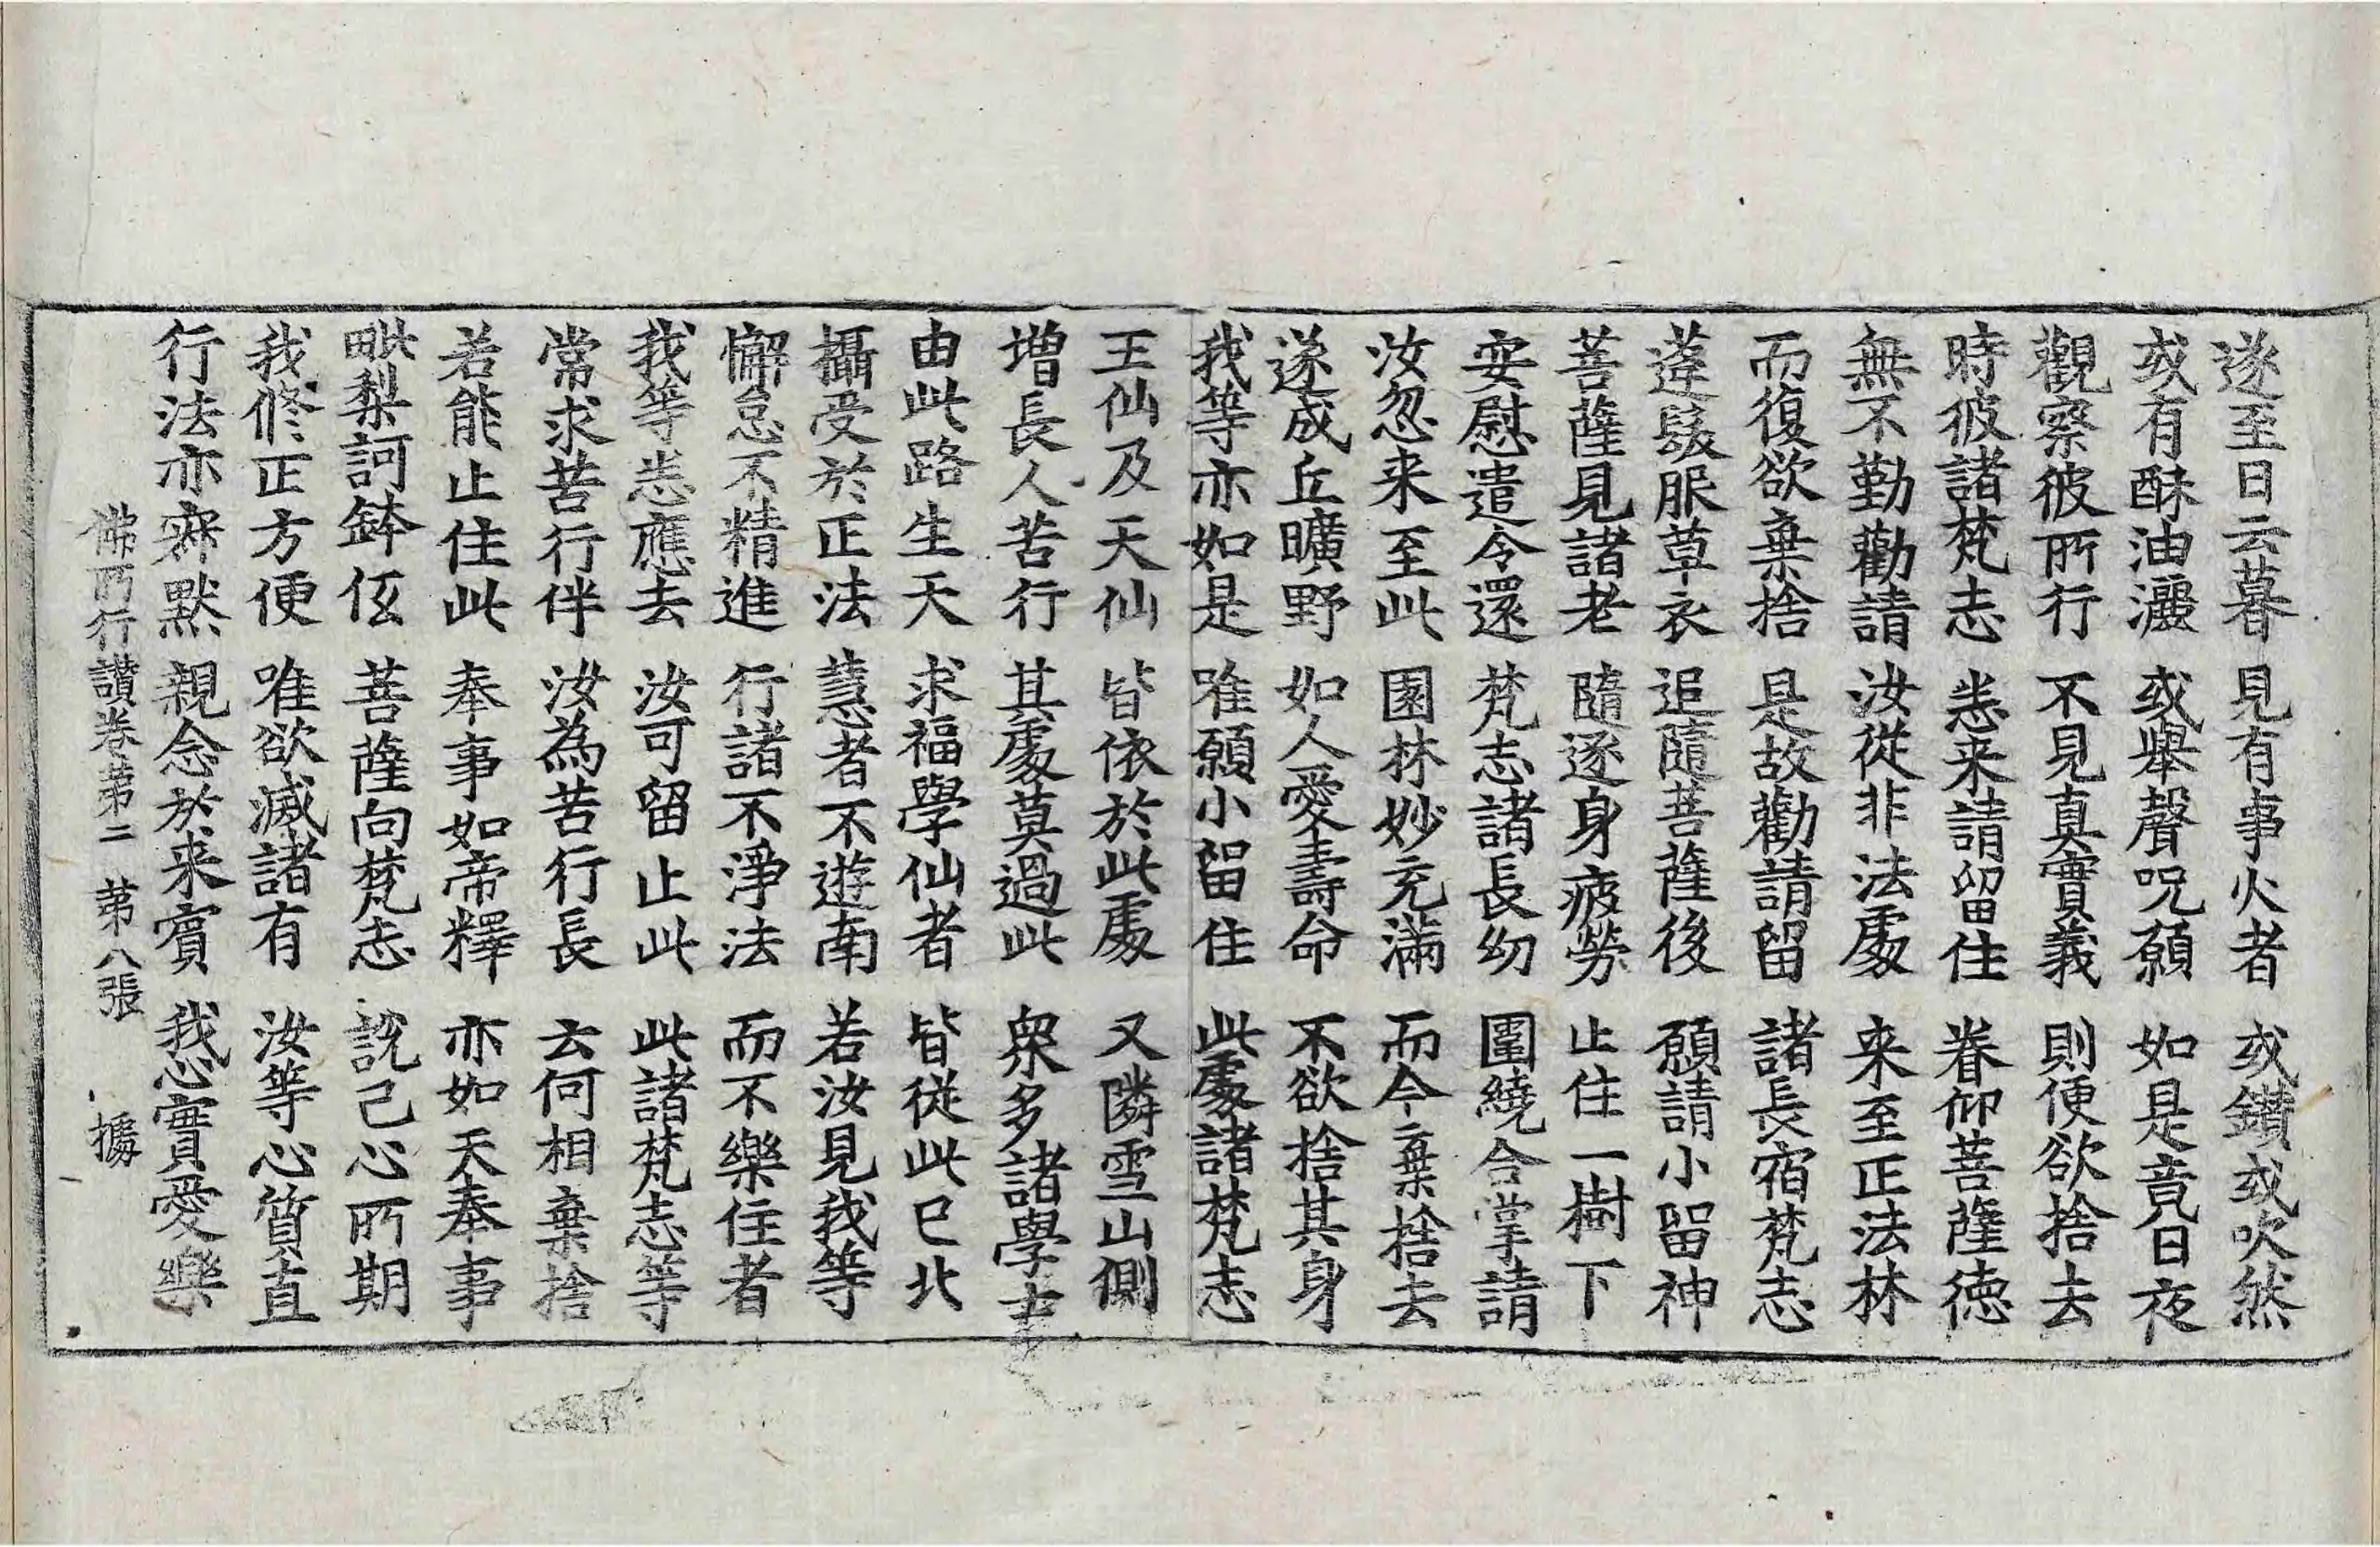 遂至日云暮　見有事火者　或鑚或吹然
或有酥油灑　或舉聲呪願　如是竟日夜
觀察彼所行　不見真實義　則便欲捨去
時彼諸梵志　悉来請留住　眷仰菩薩徳
無不勤勸請　汝從非法處　来至正法林
而復欲棄捨　是故勸請留　諸長宿梵志
蓬髮服草衣　追隨菩薩後　願請小留神
菩薩見諸老　隨逐身疲勞　止住一樹下
安慰遣令還　梵志諸長幼　圍繞合掌請
汝忽来至此　園林妙充滿　而今棄捨去
遂成丘曠野　如人愛壽命　不欲捨其身
我等亦如是　唯願小留住　此處諸梵志
王仙及天仙　皆依於此處　又隣雪山側
増長人苦行　其處莫過此　衆多諸學士
由此路生天　求福學仙者　皆從此已北
攝受於正法　慧者不遊南　若汝見我等
懈怠不精進　行諸不淨法　而不樂住者
我等悉應去　汝可留止此　此諸梵志等
常求苦行伴　汝為苦行長　云何相棄捨
若能止住此　奉事如帝釋　亦如天奉事
毗梨訶鉢低　菩薩向梵志　說己心所期
我修正方便　唯欲滅諸有　汝等心質直
行法亦寂默　親念於来賓　我心實愛樂
佛所行讃卷第二　第八張　㨿